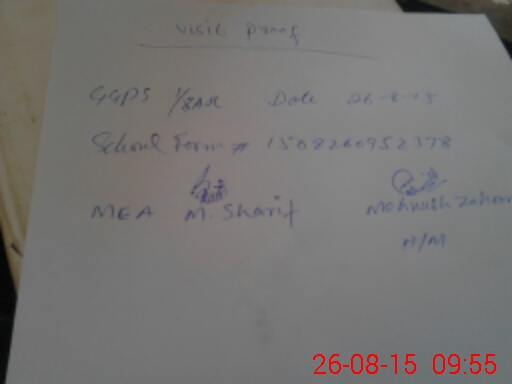 Visit Proof
GGPS 1/8AR Date 26-8-15
School Form # 1508260952378
MEA M. Sharif Mehwish Zahoor
H/M
26-08-15 09:55